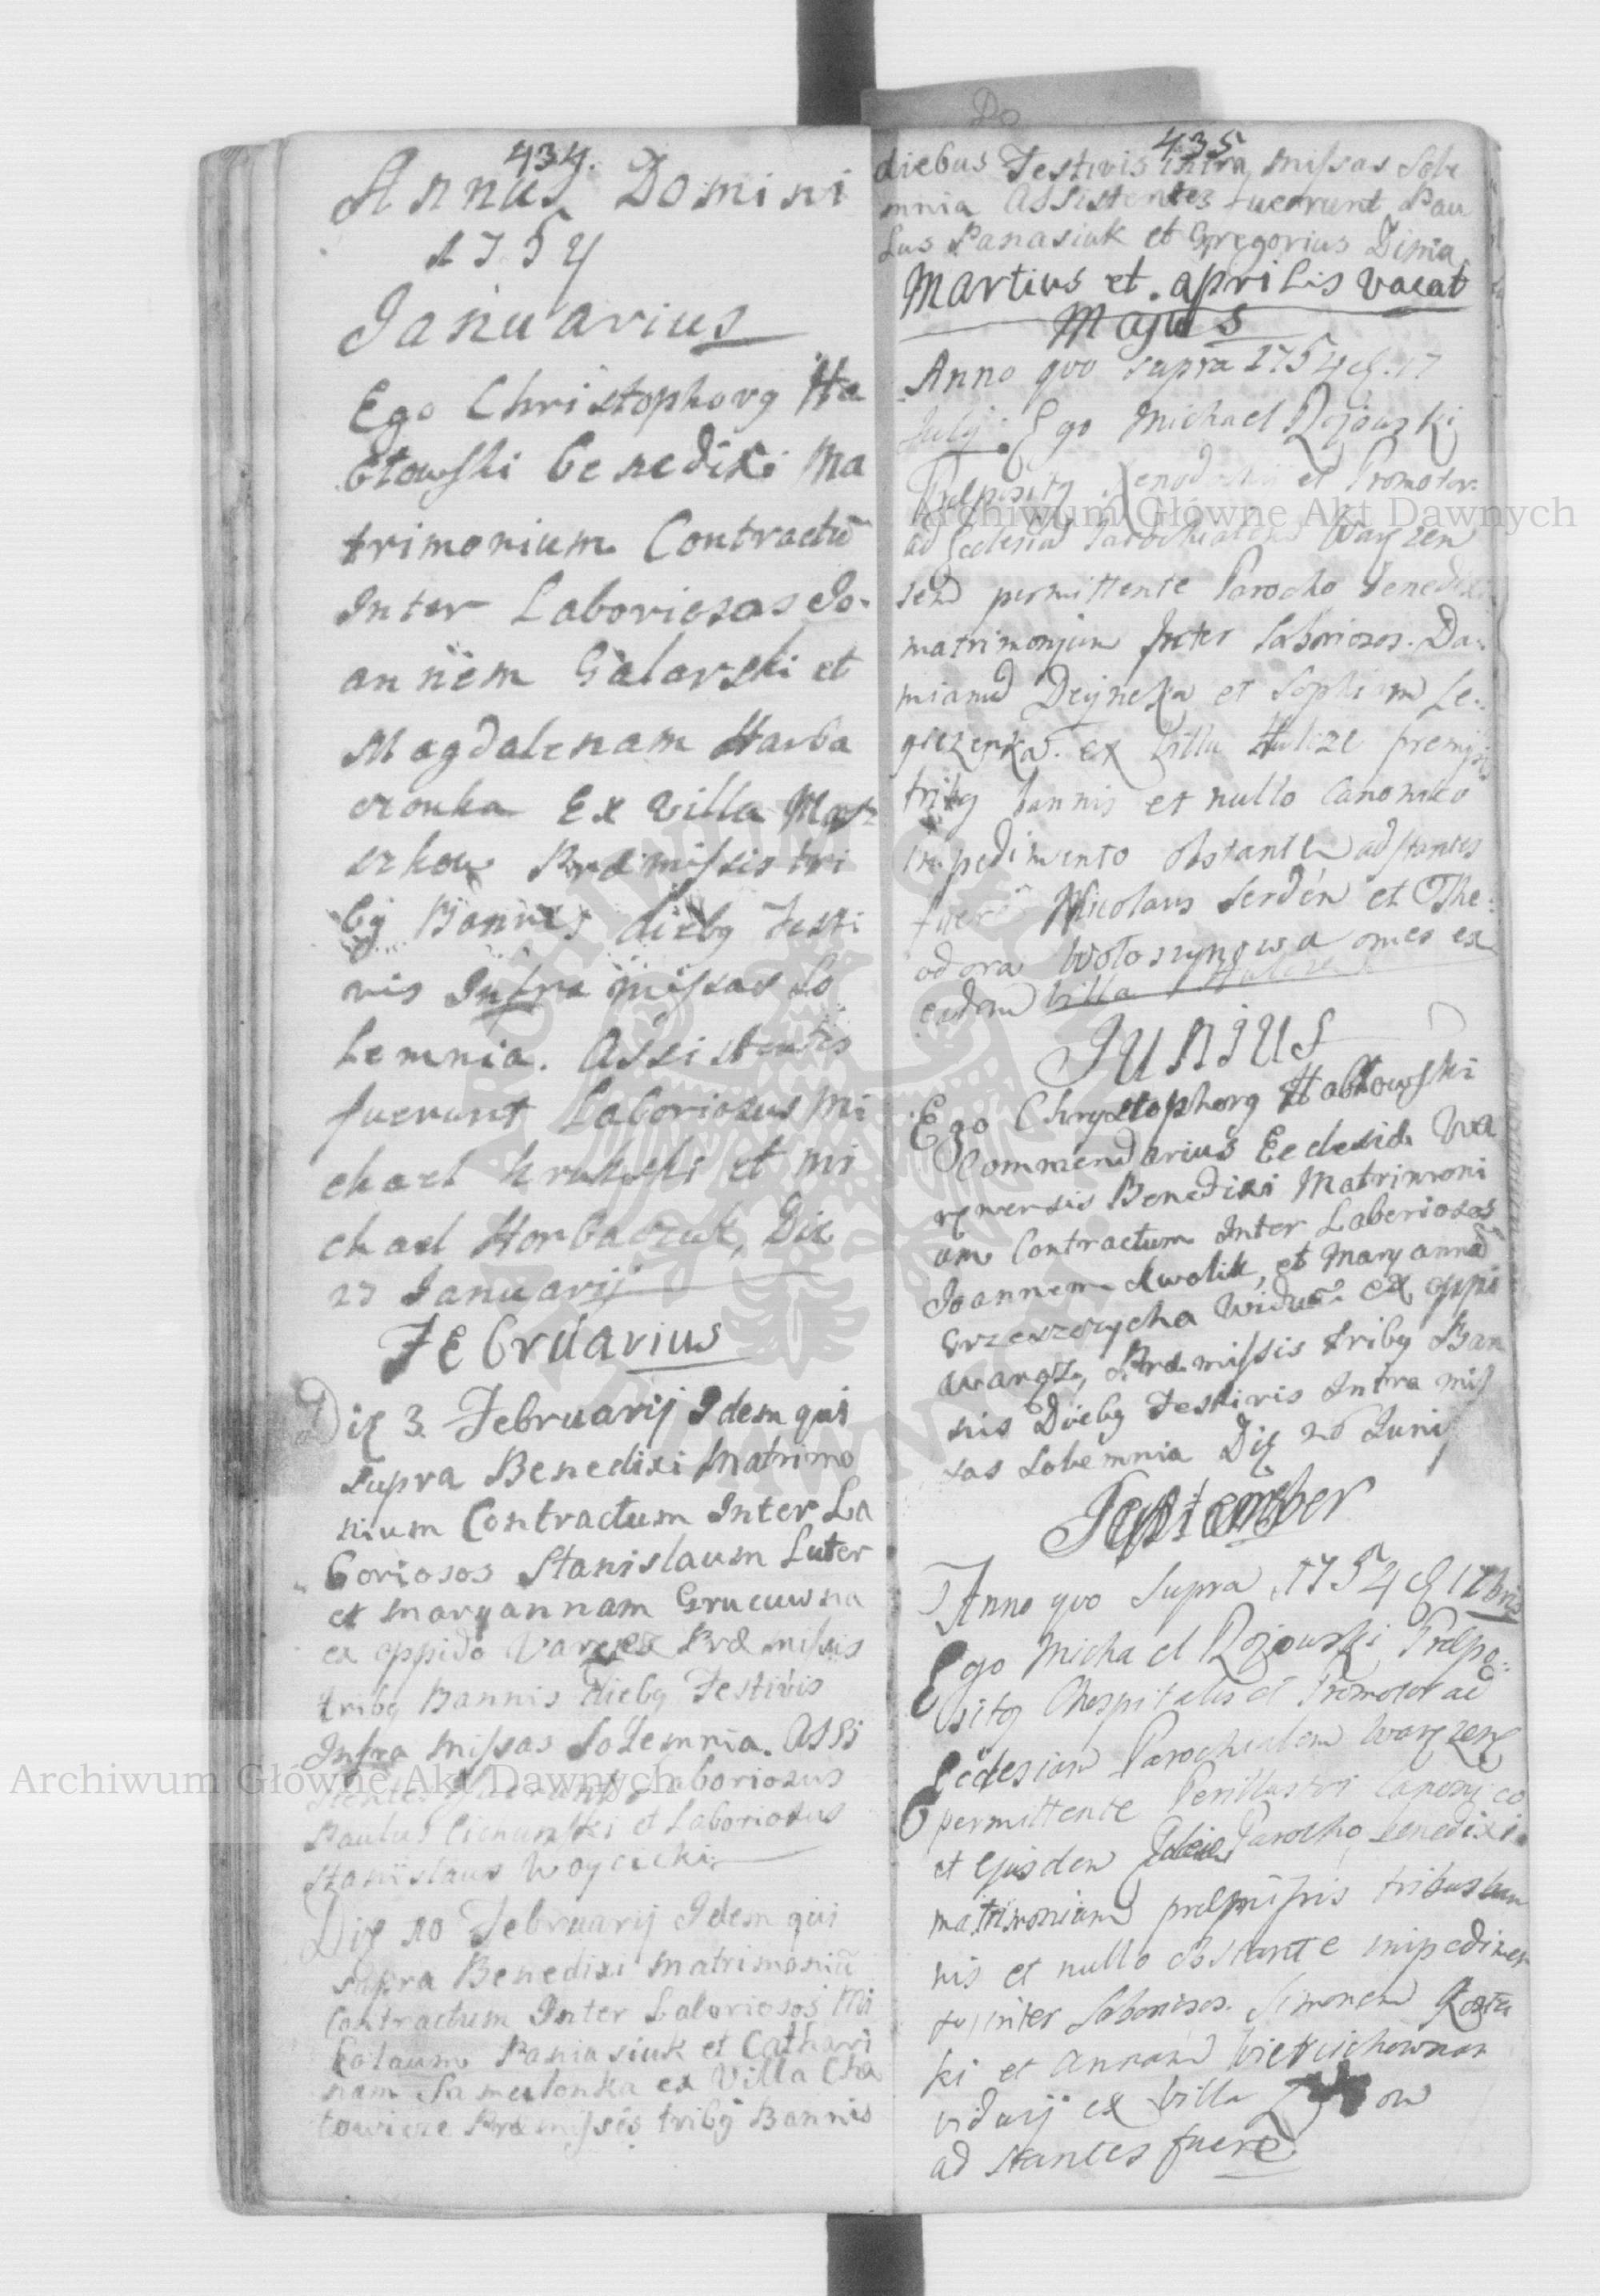 434.
Annus Domini
1754
Januarius
Ego Christophorg Ha
btowski benedixi Ma
trimonium Contractū
Inter Laboriosos Jo-
annem Galarski et
Magdalenam Harba
czonka Ex villa
Præmissis tri
bg Bannis diebg Festi
vis Infra missas So
lemnia. Assistentes
fuerunt Laboriosus Mi
chael Krukoski et Mi
chael Horbaczuk, Die
27 Januarij
Februarius
Die 3 Februarij Idem qui
supra Benedixi Matrimo
nium Contractum Inter La
boriosos Stanislaum Luter
et maryannam Grucuwna
ex oppido Præmissis
tribg Bannis diebg Festivis
Infra missas Solemnia. Assi
stentes fuerunt Laboriosus
Paulus et Laboriosus
Staniislaus Woycicki
Die 10 Februarij Idem qui
supra Benedixi matrimoniū
Contractum Inter Laboriosos Mi
kolaum Paniasiuk et Cathari
nam Samulonka ex Villa Cho
towicze Præmissis tribg Bannis
435
diebus Festivis intra missas Sole
mnia Assistentes fuerunt Pau
lus Panasiuk et Gregorius Dima
Martius et. aprilis vacat
Majus
Anno quo supra 1754 d. 17
Julij. Ego Michael Rojowski
Præpositg et Promotor
ad Ecclesiam Parochialem Waręzen
sem permittente Parocho benedixi
matrimonium Inter laboriosos. Da-
mianum Deyneka et Sophiam Le-
gieżenka. ex villa Hulcze premissis
tribg bannis et nullo Canonico
impedimento obstante adstantes
fuere Nicolaus Serden et The-
odora Wołoszynowa omes ex
eadem villa Hulcze
Junius
Ego Chrystophorg Habtowski
Commendarius Ecclesiæ Wa
ręnensis Benedixi Matrimoni
um Contractum Inter Laboriosos
Joannem Kwolik, et Maryannā
Grzeszczycha Viduā ex oppi
Waręż, Præmissis tribg Ban
nis Diebg Festivis Intra mis
sas Solemnia Die 26 Junij
September
Anno quo supra 1754 d 17bris
Ego Michael Rojowski Præpo-
sitg Chospitalis et Promotor ad
Ecclesiam Parochialem Waręzen
permittente Perillustri Canonico
et ejusdem Parocho, benedixi
matrimonium præmissis tribus ban
nis et nullo obstante impedimen
to, inter laboriosos. Simonem Kostu
ki et Annam Wietrichownan
viduij ex villa
ad stantes fuere
Archiwum Główne Akt Dawnych
Archiwum Główne Akt Dawnych